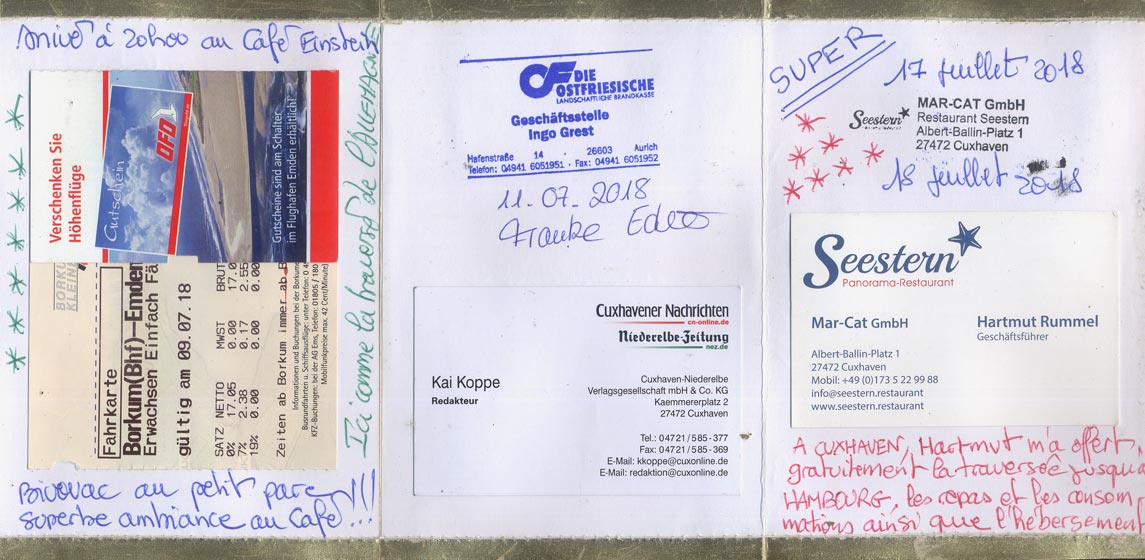 Arrivé à 20h00 au Café Einstein
Verschenken Sie
Höhenflüge
Gutschein
OFD
Gutscheine sind am Schalter
im Flughafen Emden erhältlich!
BORKU
KLEINE
Fahrkarte
Borkum(Bhf)—Emden
Erwachsen Einfach Fä
gültig am 09.07.18
SATZ NETTO MWST BRUT
0% 17.05 0.00 17.0
7% 2.38 0.17 2.55
19% 0.00 0.00 0.00
Zeiten ab Borkum immer ab B
Informationen und Buchungen bei der Borkum
Busrundfahrten u. Schiffsausflüge: unter Telefon: 0 4
KFZ-Buchungen: bei der AG Ems, Telefon: 01805 / 180
Mobilfunkpreise max. 42 Cent/Minute)
Ici comme la traversée de
Bivouac au petit parc !!!
superbe ambiance au Café...!!
DIE
OSTFRIESISCHE
LANDSCHAFTLICHE BRANDKASSE
Geschäftsstelle
Ingo Grest
Hafenstraße 14 · 26603 Aurich
Telefon: 04941 6051951 · Fax: 04941 6051952
11-07-2018
Frauke
Cuxhavener Nachrichten
cn-online.de
Niederelbe-Zeitung
nez.de
Kai Koppe
Redakteur
Cuxhaven-Niederelbe
Verlagsgesellschaft mbH & Co. KG
Kaemmererplatz 2
27472 Cuxhaven
Tel.: 04721/585-377
Fax: 04721/585-369
E-Mail: kkoppe@cuxonline.de
E-Mail: redaktion@cuxonline.de
SUPER
17 juillet 2018
Seestern
MAR-CAT GmbH
Restaurant Seestern
Albert-Ballin-Platz 1
27472 Cuxhaven
18 juillet 2018
Seestern
Panorama-Restaurant
Mar-Cat GmbH
Hartmut Rummel
Geschäftsführer
Albert-Ballin-Platz 1
27472 Cuxhaven
Mobil: +49 (0)173 5 22 99 88
info@seestern.restaurant
www.seestern.restaurant
A CUXHAVEN, Hartmut m'a offert
gratuitement la traversée jusqu'a
HAMBOURG, les repas et les consom
mations ainsi que l'hébergement